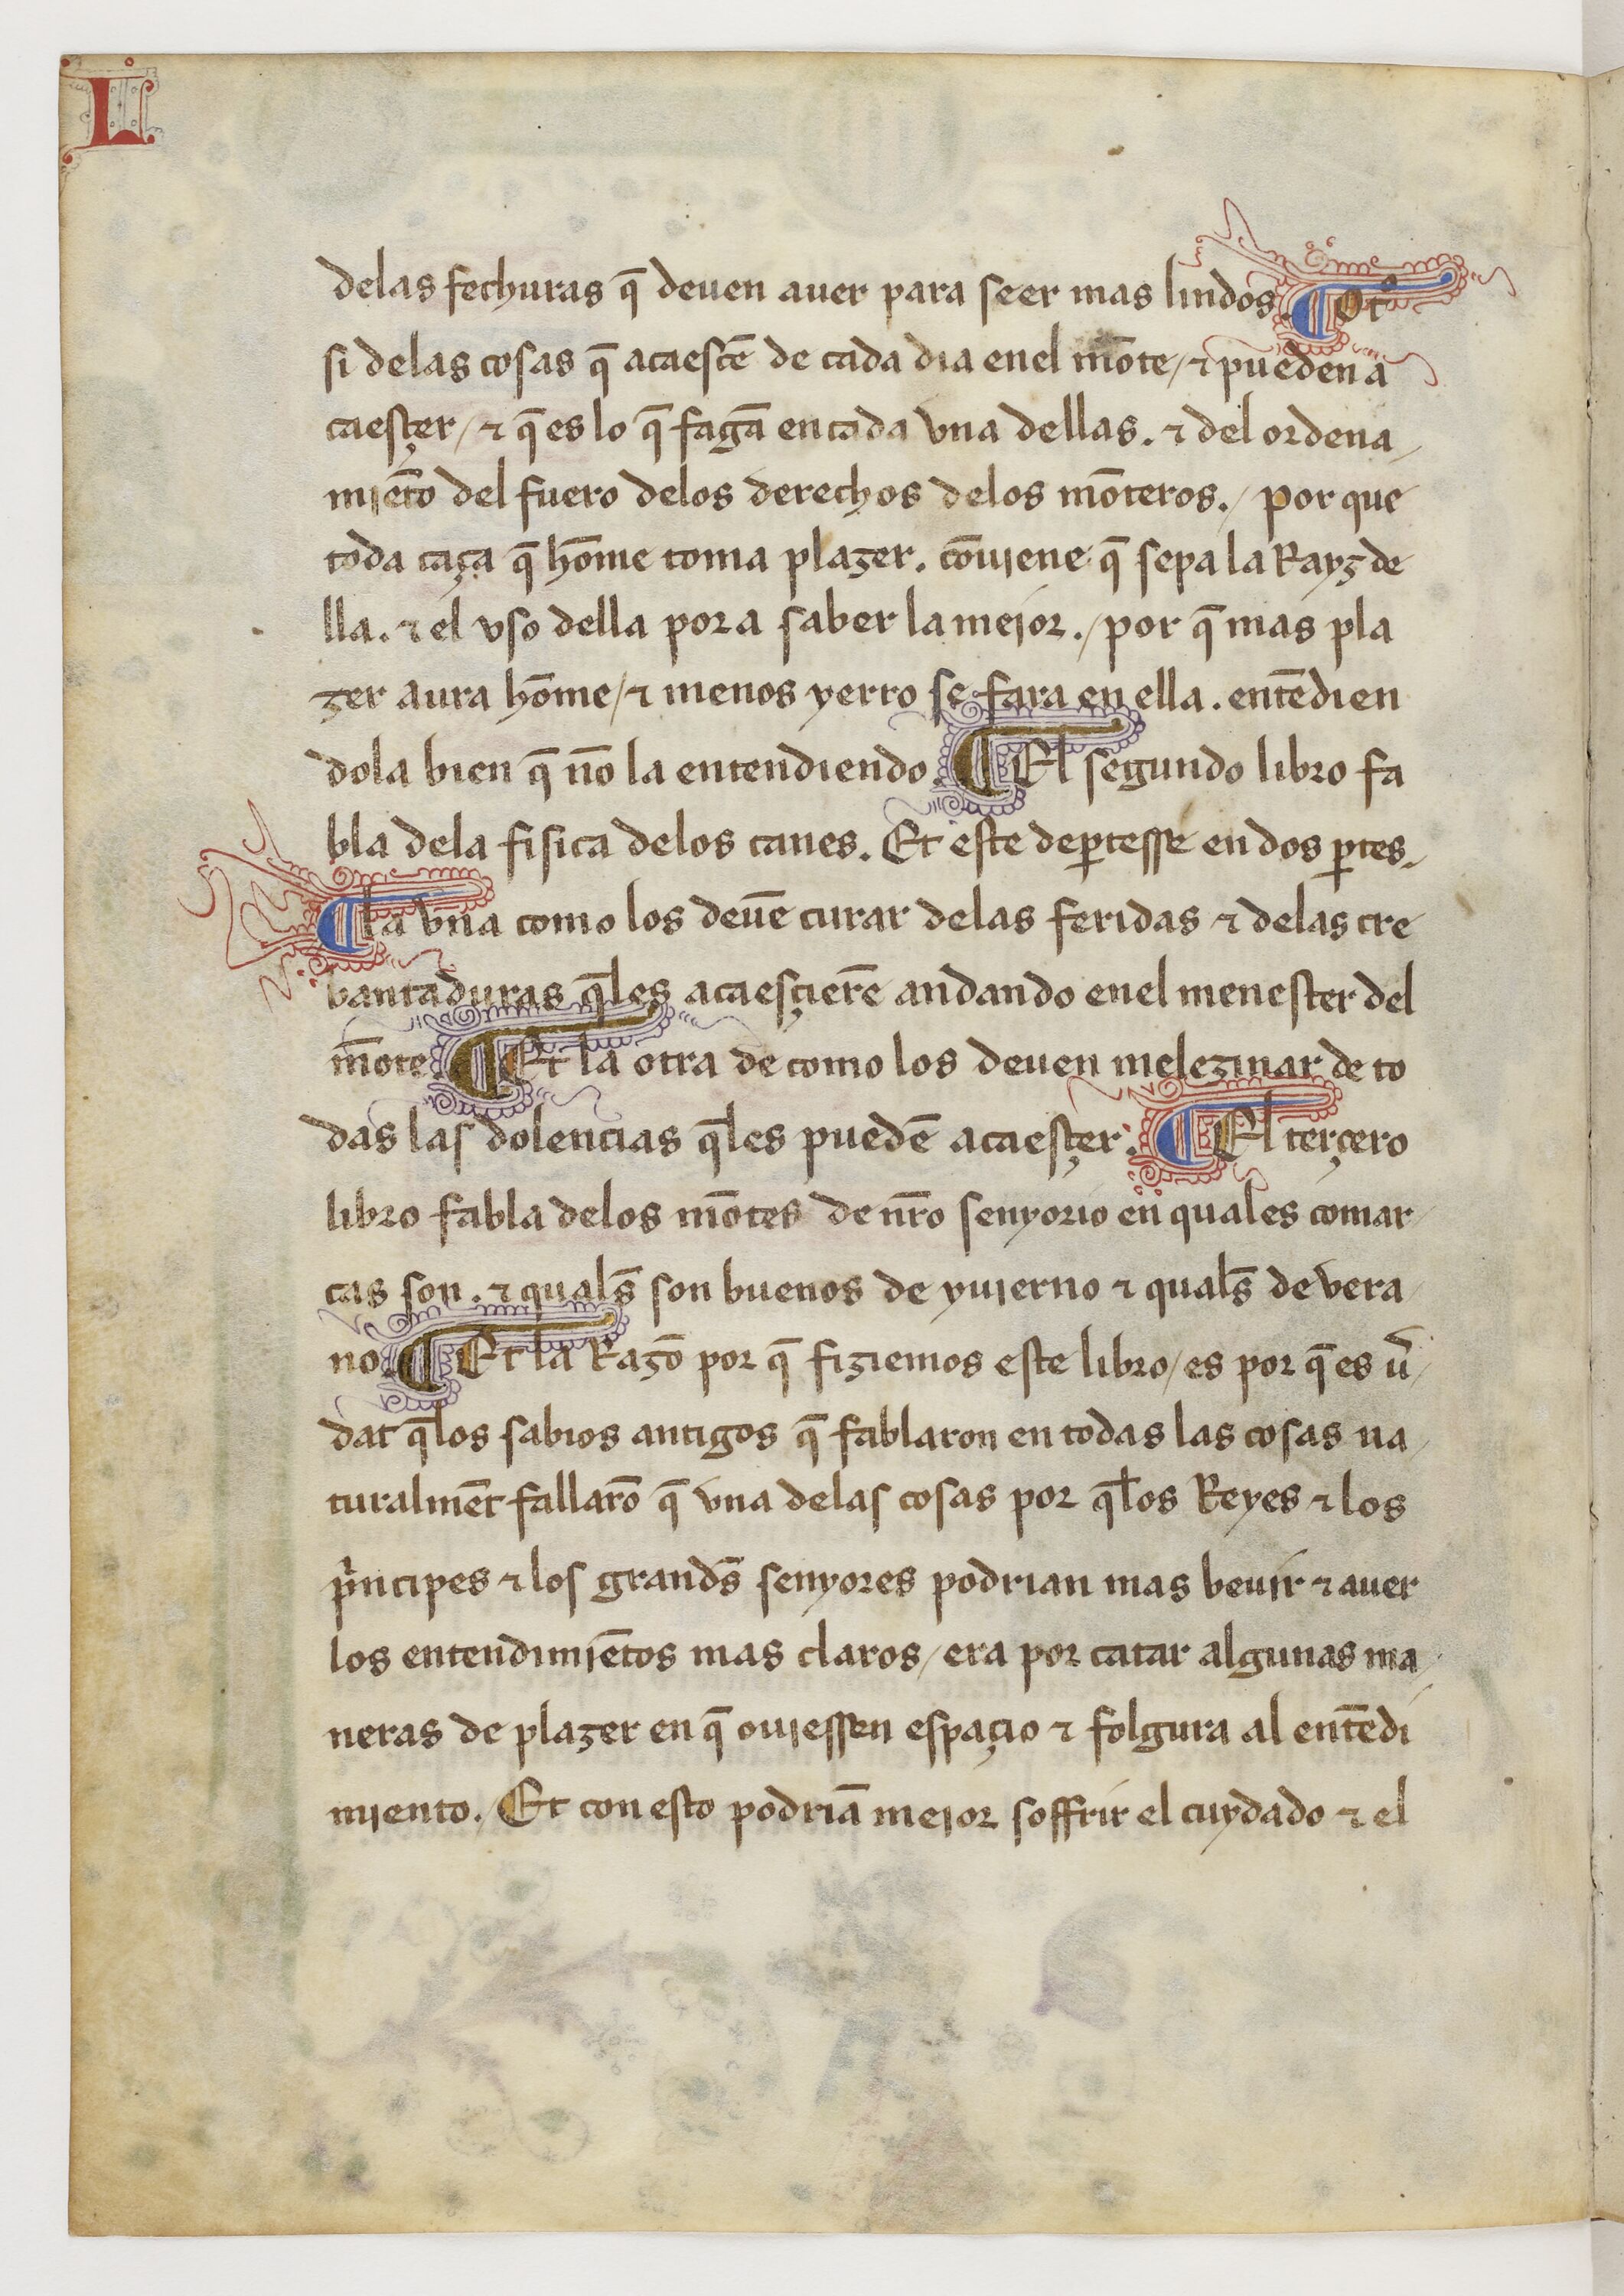 L
delas fechuras q̄ deuen auer para seer mas lindos. ¶ Otᵒ
si delas cosas q̄ acaescē de cada dia enel mōte / ⁊ pueden a
caesçer / ⁊ q̄ es lo q̄ fagā en cada vna dellas. ⁊ del ordena /
mjēto del fuero delos derechos delos mōteros. / por que
toda caça q̄ hōme toma plazer. cōujene q̄ sepa la Rayz de
lla. ⁊ el vso della por a saber la mejor. / por q̄ mas pla
zer aura hōme / ⁊ menos yerro se fara en ella. entēdien
dola bien q̄ nō la entendiendo. ¶ El segundo libro fa
bla dela fisica delos canes. Et este deꝑtesse en dos ꝑtes. /
¶ la vna como los deuē curar delas feridas ⁊ delas cre
bantaduras q̄les acaesçierē andando enel menester del
mōte. ¶ Et la otra de como los deuen melezinar de to
das las dolencias q̄les puedē acaesçer. ¶ El terçero
libro fabla delos mōtes de nr̄o senyorio en quales comar /
cas son. ⁊ qualˢ̄ son buenos de yujerno ⁊ qualˢ̄ de vera /
no. ¶ Et la Razō por q̄ fiziemos este libro / es por q̄ es v̄ /
dat q̄los sabios antigos q̄ fablaron en todas las cosas na /
turalmēt fallarō q̄ vna delas cosas por q̄los Reyes ⁊ los
pͥncipes ⁊ los grandˢ̄ senyores podrian mas beujr ⁊ auer
los entendimjētos mas claros / era por catar algunas ma /
neras de plazer en q̄ oujessen espaçio ⁊ folgura al entēdi
mjento. / Et con esto podriā mejor soffrir el cuydado ⁊ el